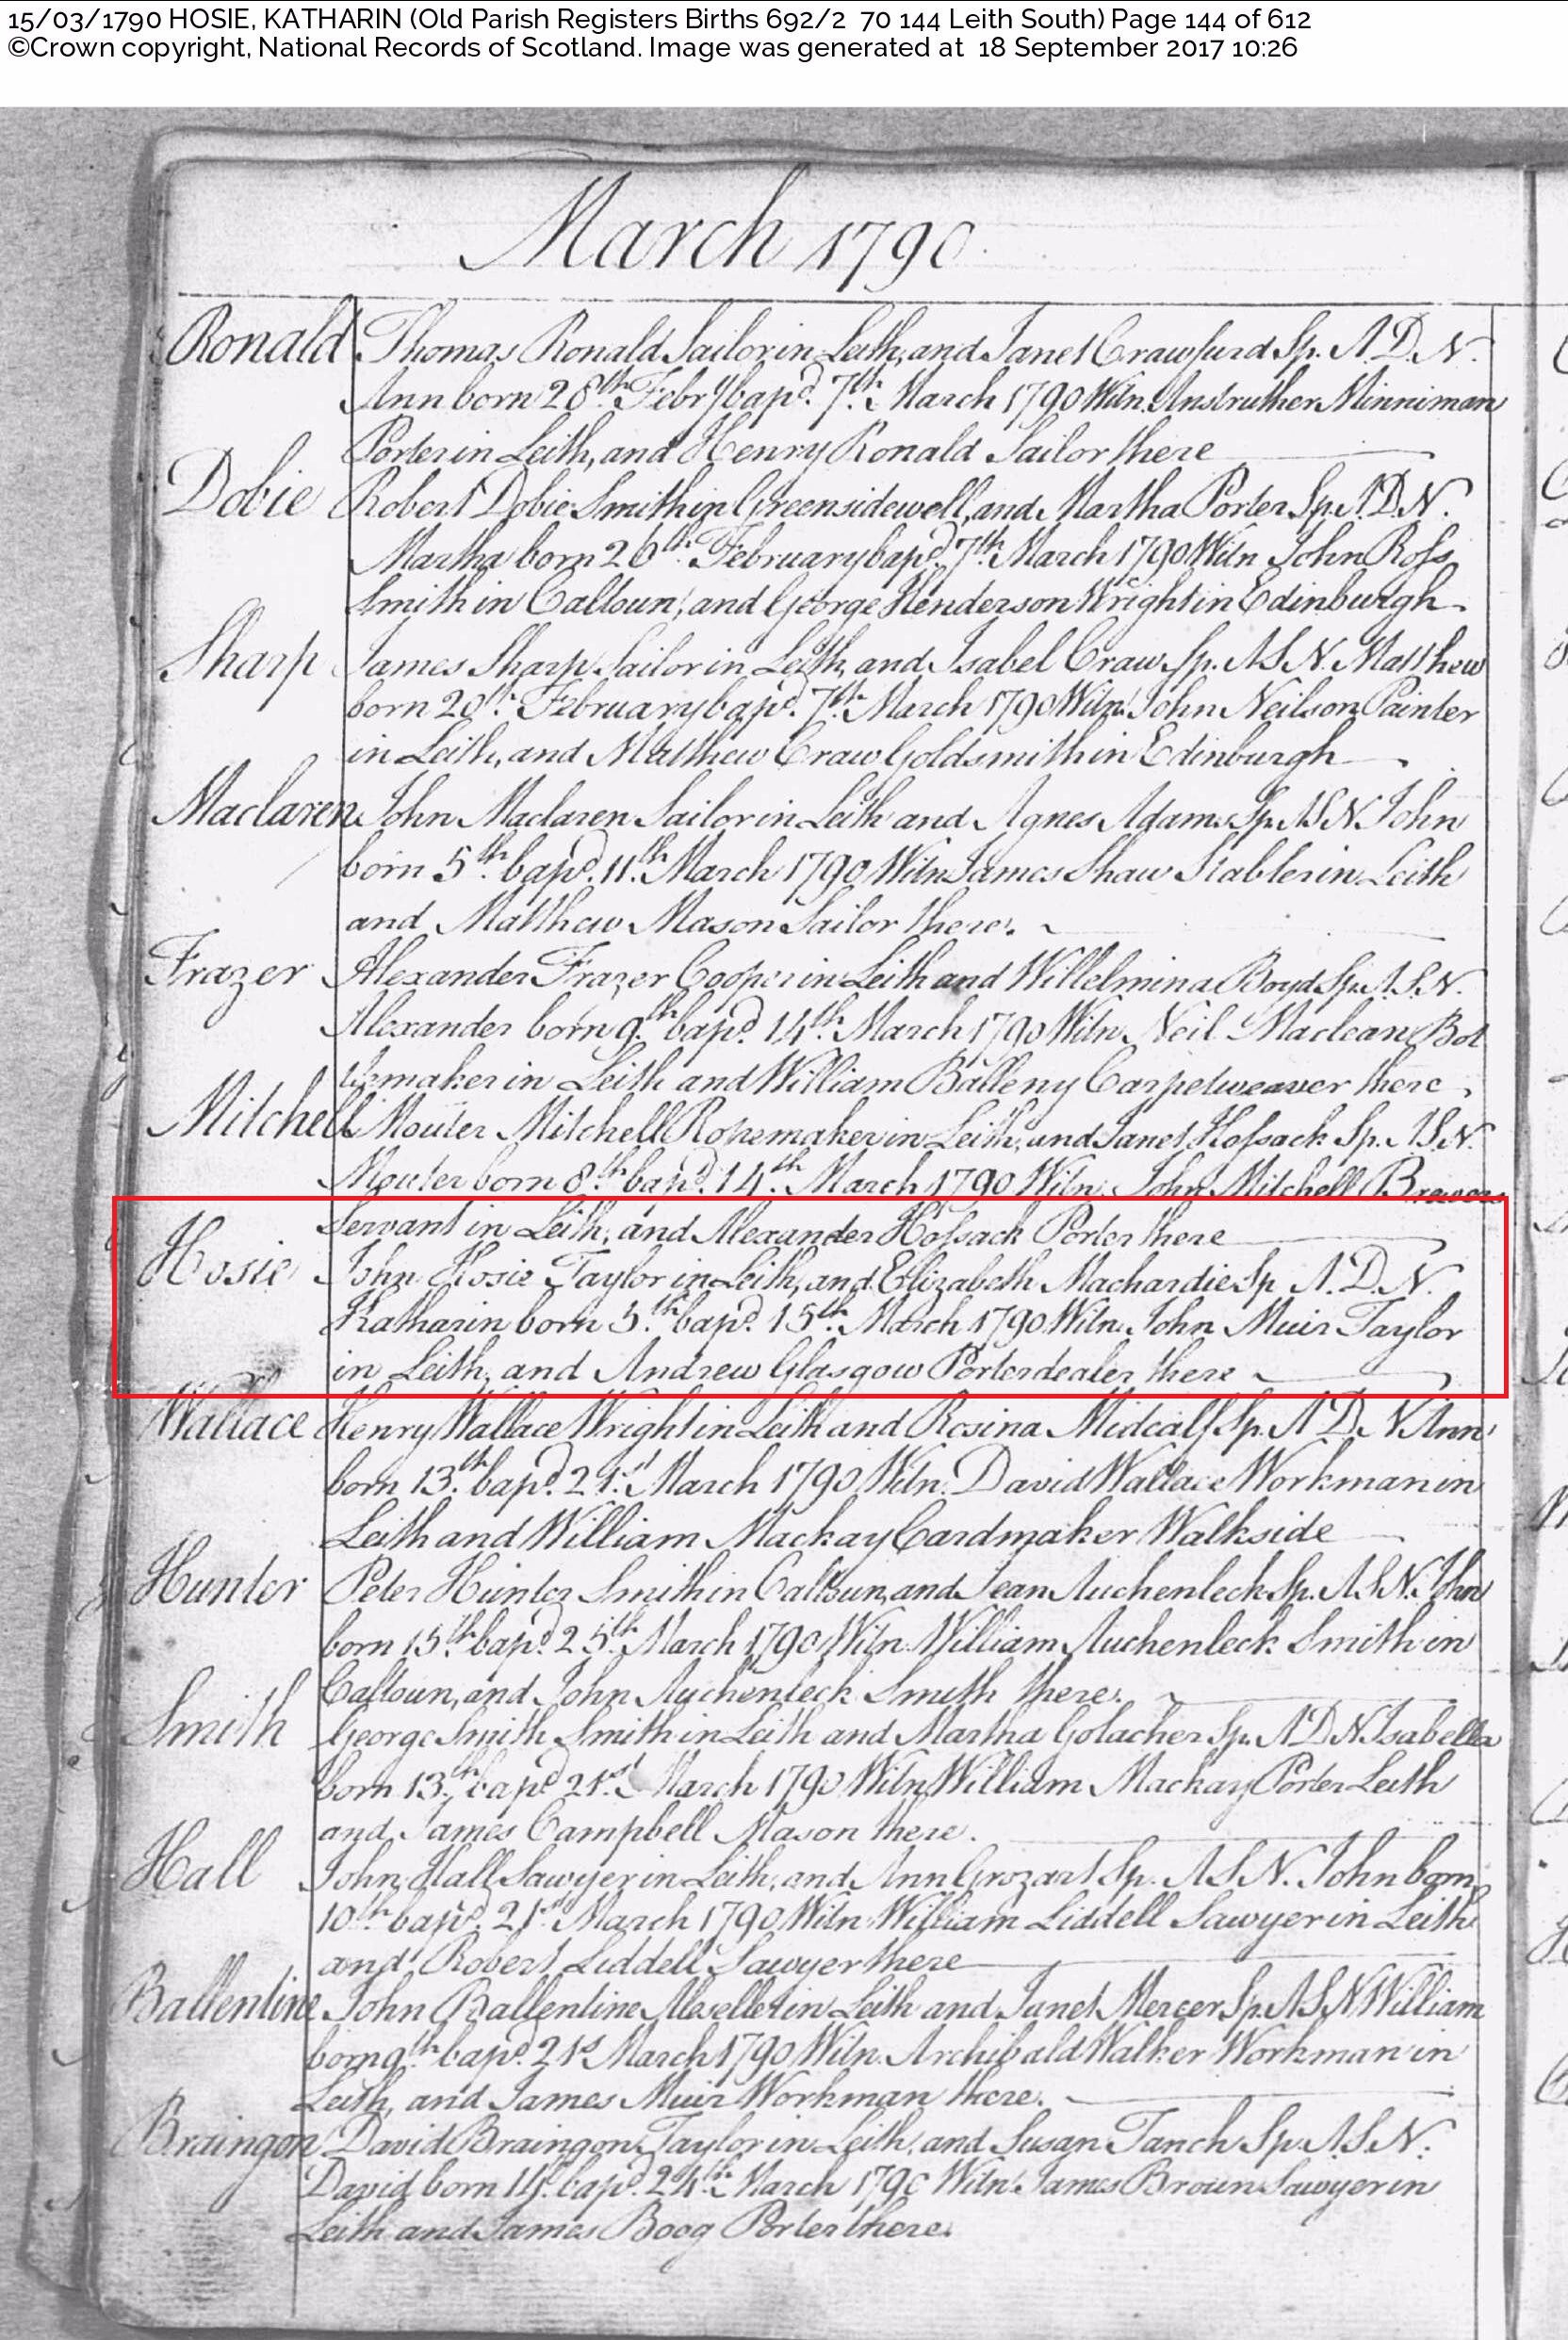 15/03/1790 HOSIE, KATHARIN (Old Parish Registers Births 692/2 70 144 Leith South) Page 144 of 612
©Crown copyright, National Records of Scotland. Image was generated at 18 September 2017 10:26
March 1790
Ronald Thomas Ronald Sailor in Leith, and Janet Crawfurd Sp. A.D.N.
Ann born 28th Febry bapd. 7th March 1790 Witn. Anstruther Minniman
Porter in Leith, and Henry Ronald Sailor there
Dobie Robert Dobie Smith in Greensidewell, and Martha Porter Sp. A.D.N.
Martha born 26th February bapd. 7th March 1790 Witn John Ross
Smith in Caltoun, and George Henderson Wright in Edinburgh
Sharp James Sharp Sailor in Leith, and Isabel Craw Sp. A S N. Matthew
born 20th February bapd. 7th March 1790 Witn. John Neilson Painter
in Leith, and Matthew Craw Goldsmith in Edinburgh
Maclaren John Maclaren Sailor in Leith and Agnes Adam Sp. A S N John
born 5th bapd. 11th March 1790 Witn James Shaw Stabler in Leith
and Matthew Mason Sailor there.
Frazer Alexander Frazer Cooper in Leith and Willelmina Boyd Sp. A.S.N.
Alexander born 9th bapd. 14th March 1790 Witn. Neil Maclean Bot
tlemaker in Leith and William Balleny Carpetweaver there
Mitchell Mouter Mitchell Ropemaker in Leith, and Janet Hossack Sp. A S N.
Mouter born 8th bapd. 14th March 1790 Witn. John Mitchell Brewers
Servant in Leith, and Alexander Hossack Porter there
Hosie John Hosie Taylor in Leith, and Elizabeth Machardie Sp A.D.N.
Katharin born 5th bapd. 15th March 1790 Witn. John Muir Taylor
in Leith, and Andrew Glasgow Porterdealer there
Wallace Henry Wallace Wright in Leith and Rosina Midcalf Sp. A D N Ann
born 13th bapd. 21st March 1790 Witn. David Wallace Workman in
Leith and William Mackay Cardmaker Walkside
Hunter Peter Hunter Smith in Caltoun, and Jean Auchenleck Sp. A S N. John
born 15th bapd 25th March 1790 Witn. William Auchenleck Smith in
Caltoun, and John Auchenleck Smith there.
Smith George Smith Smith in Leith and Martha Golacher Sp. A D N Isabella
born 13th bapd 21st March 1790 Witn William Mackay Porter Leith
and James Campbell Mason there.
Hall John Hall Sawyer in Leith, and Ann Grozart Sp. A S N. John born
10th bapd. 21st March 1790 Witn William Liddell Sawyer in Leith
and Robert Liddell Sawyer there
Ballentine John Ballentine in Leith and Janet Mercer Sp. A S N William
born 9th bapd. 21st March 1790 Witn. Archibald Walker Workman in
Leith, and James Muir Workman there.
Braingon David Braingon Taylor in Leith, and Susan Tanch Sp. A S N.
David born bapd. 24th March 1790 Witn. James Broun Sawyer in
Leith and James Boog Porter there.